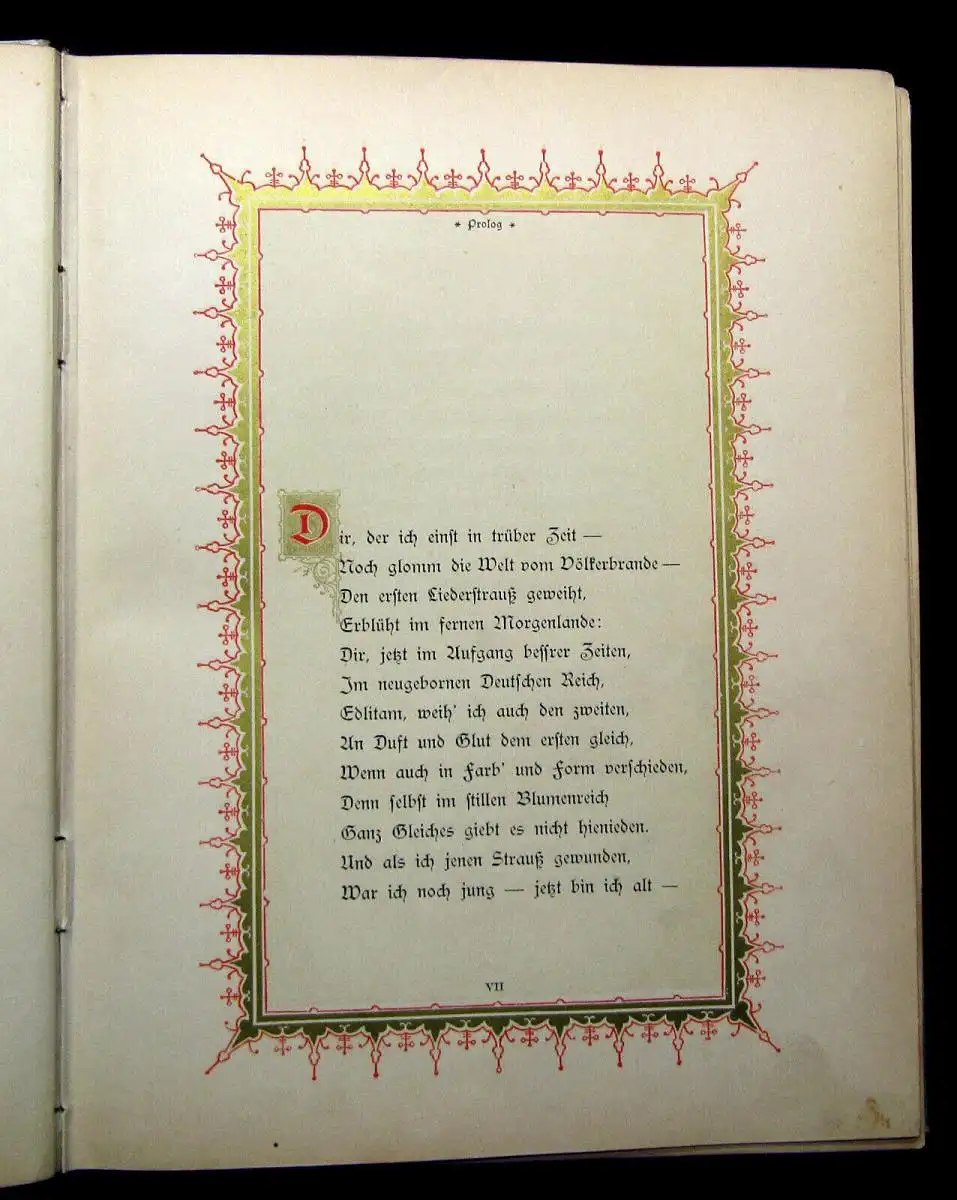 * Prolog *
Dir, der ich einſt in trüber Zeit —
Noch glomm die Welt vom Völkerbrande —
Den erſten Liederſtrauß geweiht,
Erblüht im fernen Morgenlande:
Dir, jetzt im Aufgang beſſrer Zeiten,
Im neugebornen Deutſchen Reich,
Edlitam, weih' ich auch den zweiten,
An Duft und Glut dem erſten gleich,
Wenn auch in Farb' und Form verſchieden,
Denn ſelbſt im ſtillen Blumenreich
Ganz Gleiches giebt es nicht hienieden.
Und als ich jenen Strauß gewunden,
War ich noch jung — jetzt bin ich alt —
VII